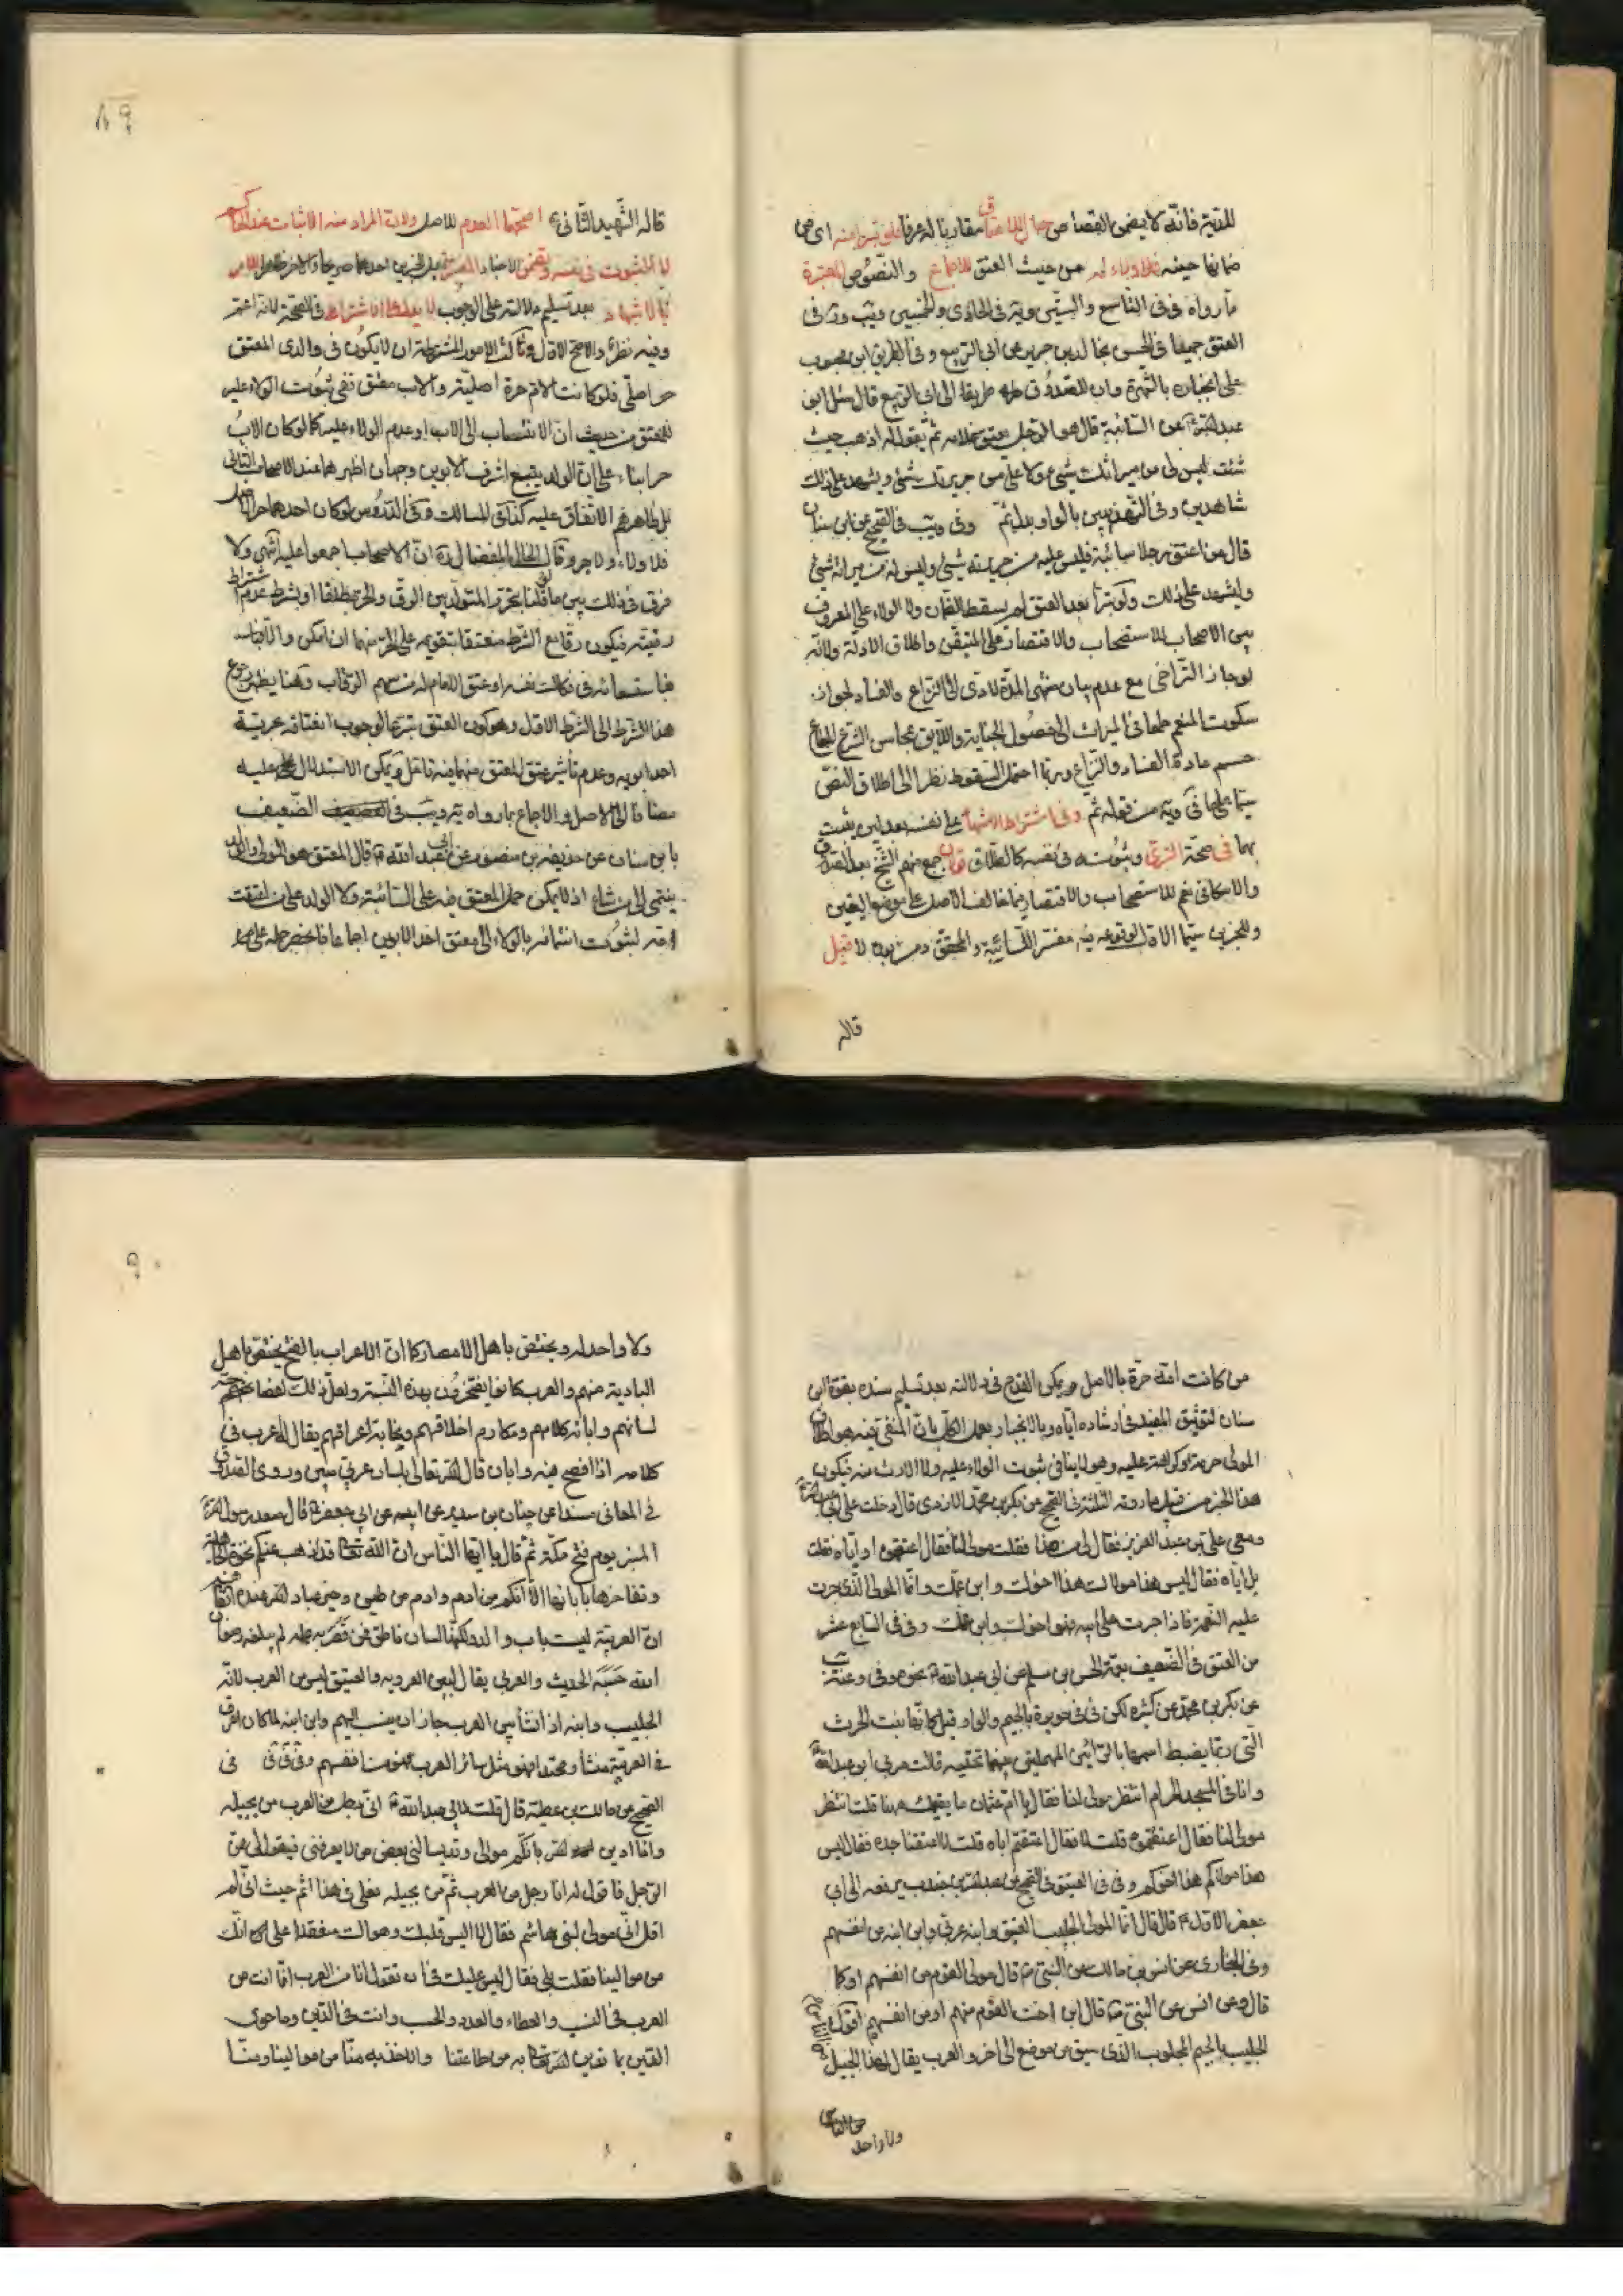 للدية فانه لا يضمن القصاص حال الاعتاق مقارنا له عرفا فلو تبرا منه اى من
ضمانها حينه فلا ولاء له من حيث العتق للاجماع والنصوص المعتبرة
ما رواه فى فى التاسع والستين ويه فى الحادى والخمسين ويب وئر فى
العتق جميعا فى الحسن بخالد بن جرير عن ابى الربيع وفى الطريق ابن محبوب
على انجباره بالشهرة وان للصدوق طريقا الى ابى الربيع قال سئل ابو
عبد الله ع عن السائبة قال هو الرجل يعتق غلامه ثم يقول له اذهب حيث
شئت ليس لى من ميراثك شئ ولا على من جريرتك شئ ويشهد على ذلك
شاهدين وفى التهذيبين بالواو بدل ثم وفى ويب فى الصحيح عن ابن سنان
قال من اعتق رجلا سائبة فليس عليه من جريرته شئ وليس له من ميراثه شئ
وليشهد على ذلك ولو تبرا بعد العتق لم يسقط الضمان ولا الولاء على المعروف
بين الاصحاب للاستصحاب والاقتصار على المتيقن واطلاق الادلة ولانه
لو جاز التراخى مع عدم بيان منتهى المدة لادى الى النزاع والفساد لجواز
سكوت المنعم طمعا فى الميراث الى حصول الجناية واللايق بمحاسن الشرع الجماع
حسم مادة الفساد والنزاع وربما احتمل السقوط نظرا الى اطلاق النص
سيما على ما فى ويه من قوله ثم وفى اشتراط الاشهاد على نفسه بعدلين يثبت
بهما فى صحة التبرى وثبوته فى نفسه كالطلاق قولان جمع منهم الشيخ بعد الصدوق
والاسكافى نعم للاستصحاب والاقتصار فيما خالف الاصل على موضع اليقين
وللخبرين سيما الاول لوقوعه فيه مفسر السائبة والمحقق ومن بعده لا قيل
قاله
٨٩
قاله الشهيد الثانى ع اصحهما العدم للاصل ولان المراد منه الاثبات عند الحاكم
لا الثبوت فى نفسه و الاخبار
بالاشهاد بعد تسليم دلالته على الوجوب لا يدل على اشتراطه فى الصحة لانه اعم
وفيه نظر والاصح الاول وثالث الامور المشترطة ان لا يكون فى والدى المعتق
حر اصلى فلو كانت الام حرة اصلية والاب معتق ففى ثبوت الولاء عليه
للمعتق من حيث ان الانتساب الى الاب او عدم الولاء عليه كما لو كان الاب
حرا بناء على ان الولد يتبع اشرف الابوين وجهان اظهرهما عند الاصحاب الثانى
بل ظاهرهم الاتفاق عليه كذا فى المسالك وفى الدروس لو كان احدهما حر الاصل
فلا ولاء ولا جر وقال الخال المفضال ره ان الاصحاب اجمعوا عليه انتهى ولا
فرق فى ذلك بين ما قلنا بتحرر المتولد بين الرق والحر مطلقا او بشرط عدم اشتراط
رقيته فيكون رقا مع الشرط منعتقا بتقويمه على الحر منهما ان امكن والا
فباستسعائه فى فكاك نفسه او عتق الامام له من سهم الرقاب وهنا يظهر رجوع
هذا الشرط الى الشرط الاول وهو كون العتق تبرعا لوجوب انعتاقه بحرية
احد ابويه وعدم تأثير عتق المعتق منهما فيه تامل ويمكن الاستدلال عليه
مضافا الى الاصل والاجماع بما رواه يه ويب فى الضعيف
بابن سنان عن حذيفة بن منصور عن ابى عبد الله ع قال المعتق هو المولى والولد
ينتمى الى من شاء اذ لا يمكن حمل المعتق فيه على السائبة ولا الولد على من اعتقت
امه لثبوت انتمائه بالولاء الى معتق احد الابوين اجماعا فانحصر حمله على
من كانت امه حرة بالاصل ويمكن القدح فى دلالته بعد تسليم سنده بقوة ابن
سنان لتوثيق المفيد فى ارشاده اياه وبالانجبار بعمل الكل بان المنفى فيه هو اطلاق
المولى حرمة وكراهة عليه وهو لا ينافى ثبوت الولاء عليه ولا الارث منه فيكون
هذا الخبر من قبيل ما روته الثلثة فى الصحيح عن بكر بن محمد الازدى قال دخلت على ابى عبد الله ع
ومعى على بن عبد العزيز فقال لى من هذا فقلت مولى لنا فقال اعتقتموه او اباه فقلت
بل اباه فقال ليس هذا مولاك هذا اخوك وابن عمك وانما المولى الذى جرت
عليه النعمة فاذا جرت على ابيه فهو اخوك وابن عمك وفى فى السابع عشر
من العتق فى الضعيف بعمه الحسن بن مسلم عن ابى عبد الله ع نحوه وفى وعنه
عن بكر بن محمد عن كثيره لكن فى فى جويرة بالجيم والواو قبل كانها بنت الحرث
التى ربما يضبط اسمها بالرائين المهملتين بينهما تحتية قالت مر بى ابو عبد الله ع
وانا فى المسجد الحرام انتظر مولى لنا فقال يا ام عثمان ما يقيمك ههنا قلت انتظر
مولى لنا فقال اعتقتموه قلت لا فقال اعتقتم اباه قلت لا اعتقنا جده فقال ليس
هذا مولاكم هذا اخوكم وفى فى العتيق فى الصحيح عن عبد الله بن جندب يرفعه الى ابى
جعفر الاول ع قال قال انما المولى الجليب العتيق وابنه عربى وابن ابنه من انفسهم
وفى البخارى عن انس بن مالك عن النبى ص قال مولى القوم من انفسهم او كما
قال وعن انس عن النبى ص قال ابن اخت القوم منهم او من انفسهم اقول
الجليب بالجيم المجلوب الذى سيق من موضع الى اخر والعرب يقال لهذا الجيل
ولا واحد
٩٠
ولا واحد له ويختص باهل الامصار كما ان الاعراب بالفتح يختص باهل
البادية منهم والعرب كانوا يفتخرون بهذه النسبة ولعل ذلك لفصاحتهم
لسانهم وابانة كلامهم ومكارم اخلاقهم ونجابة اعراقهم يقال اعرب فى
كلامه اذا افصح فيه وابان قال الله تعالى بلسان عربى مبين وروى الصدوق
فى المعانى مسندا عن حنان بن سدير عن ابيه عن ابى جعفر ع قال صعد رسول الله ص
المنبر يوم فتح مكة ثم قال يا ايها الناس ان الله تعالى قد اذهب عنكم نخوة الجاهلية
وتفاخرها بابائها الا انكم من ادم وادم من طين وخير عباد الله عنده اتقاهم
ان العربية ليست باب والد ولكنها لسان ناطق فمن قصر به عمله لم يبلغه رضوان
الله حسبه الحديث والعربى يقال لبين العروبه والعتيق ليس من العرب لانه
الجليب وابنه اذ انشأ بين العرب جاز ان ينسب اليهم وابن ابنه لما كان اعرق
فى العربية منشأ ومحتدا فهو مثل سائر العرب فهو من انفسهم وفى فى
الصحيح عن مالك بن عطية قال قلت لابى عبد الله ع انى رجل من العرب من بجيله
وانا ادين الله بانكم موالى وقد يسالنى بعض من لا يعرفنى فيقول لى من
الرجل فاقول له انا رجل من العرب ثم من بجيله فعلى فى هذا اثم حيث انى لم
اقل انى مولى لبنى هاشم فقال لا اليس قلبك وهواك منعقدا على انك
من موالينا فقلت بلى فقال ليس عليك فى ان تقول انا من العرب انما انت من
العرب فى النسب والعطاء والعدد والحسب وانت فى الدين وما حوى
الدين بما تدين الله تعالى به من طاعتنا والاخذ به منا من موالينا ومنا